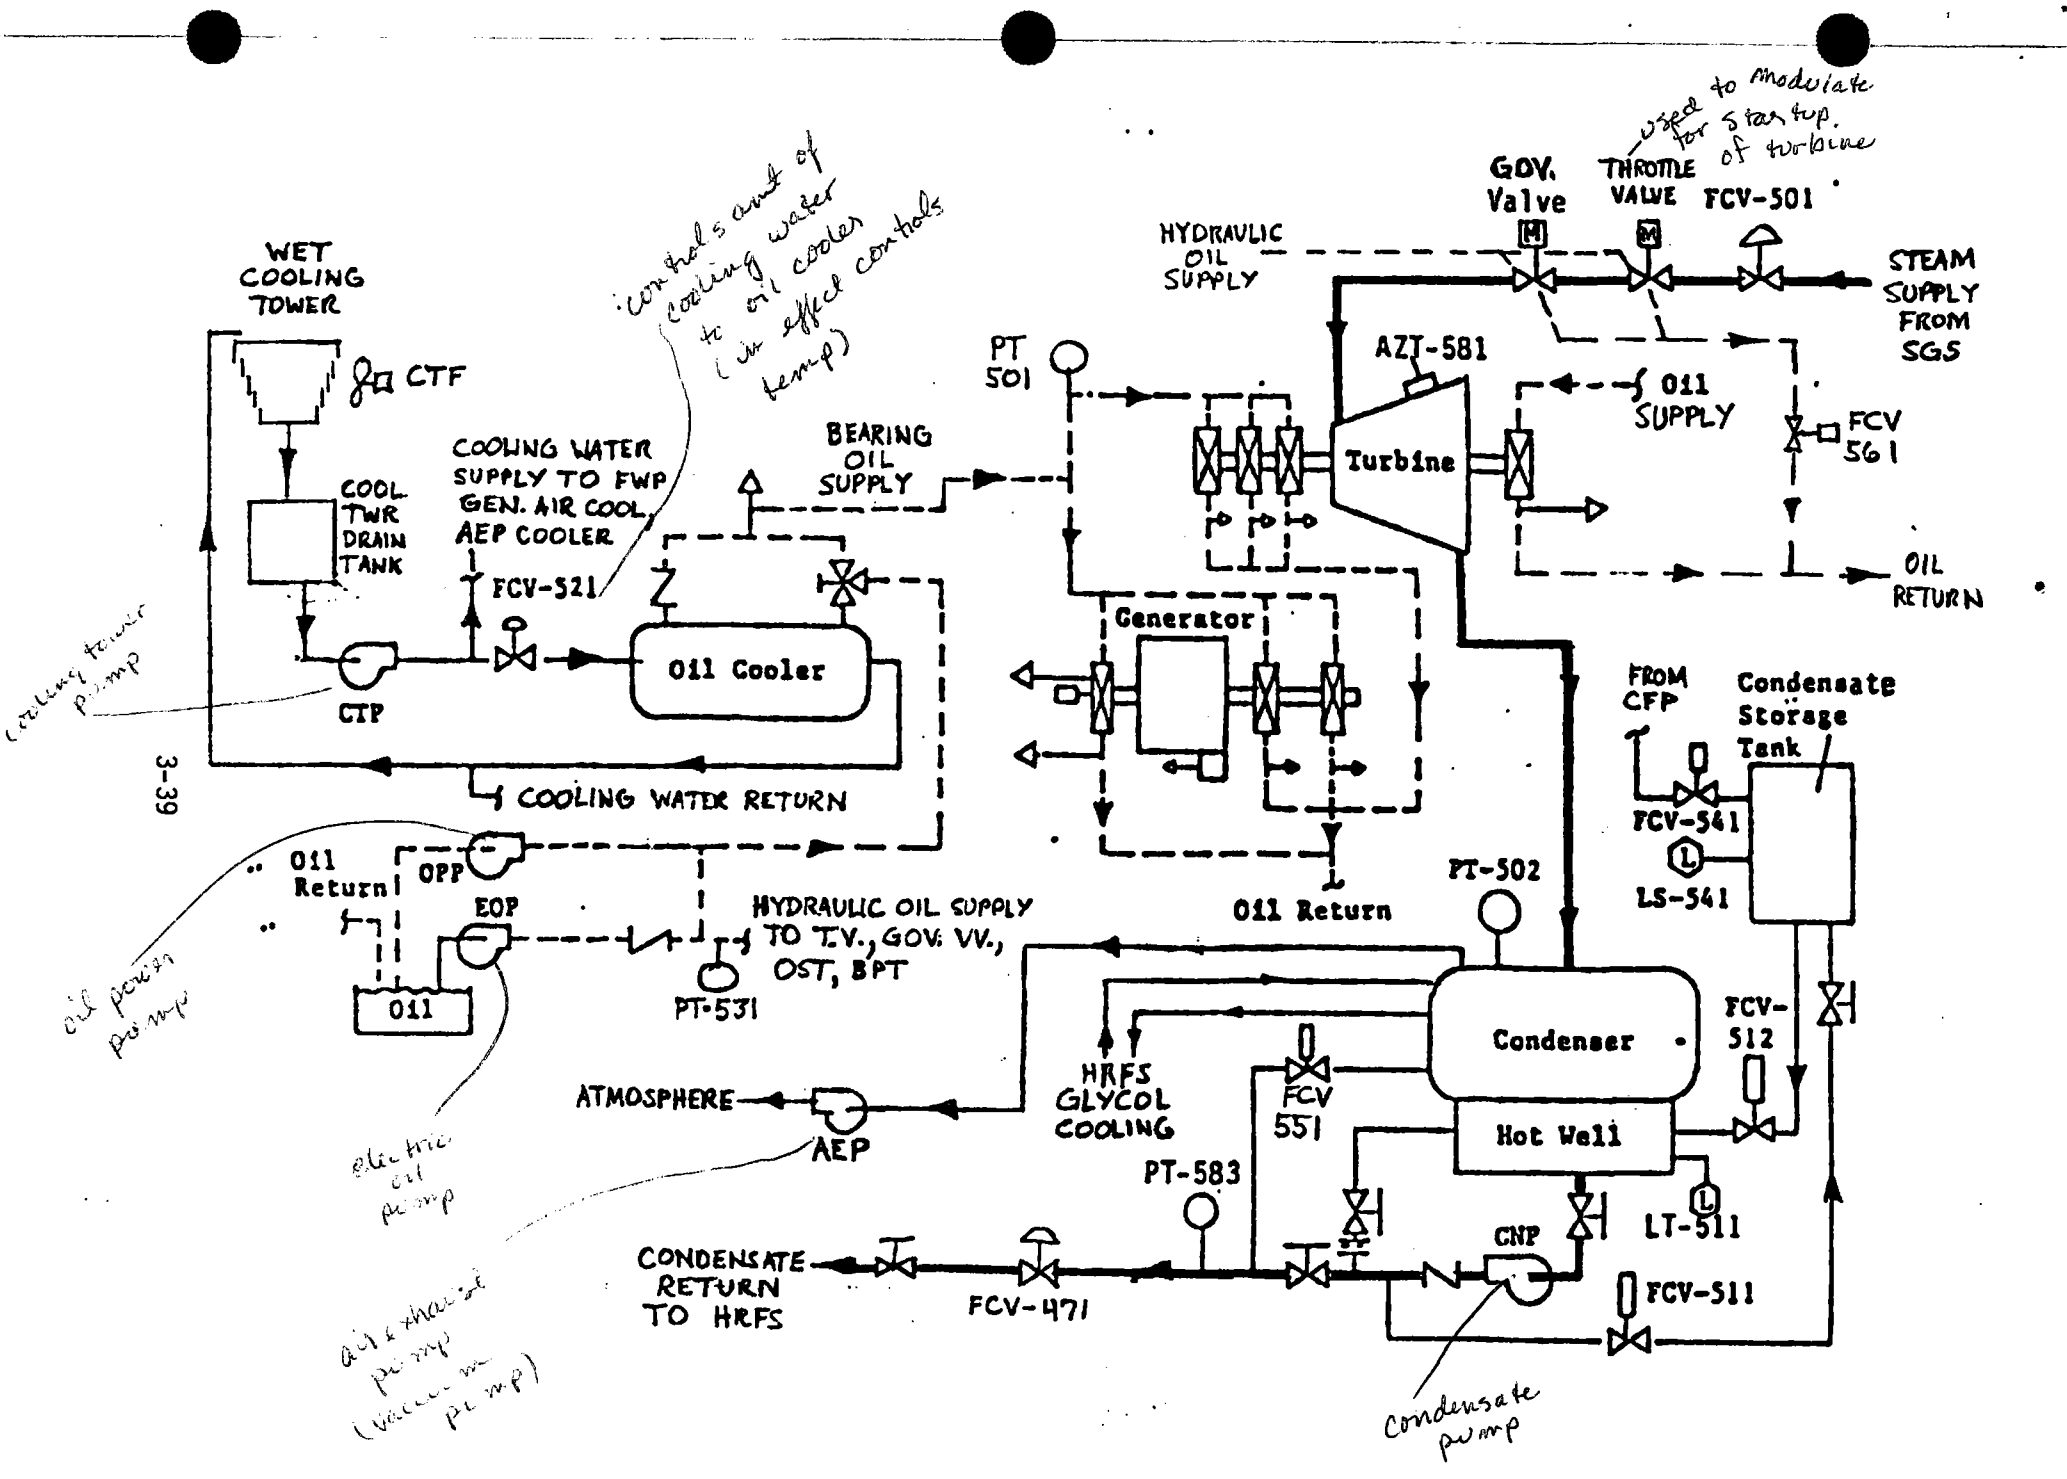 used to modulate
for startup.
of turbine
GOV.
Valve
THROTTLE
VALVE
FCV-501
M
M
HYDRAULIC
OIL
SUPPLY
STEAM
SUPPLY
FROM
SGS
controls amt of
cooling water
to oil cooler
(in effect controls
temp)
WET
COOLING
TOWER
CTF
PT
501
AZT-581
Oil
SUPPLY
FCV
561
Turbine
BEARING
OIL
SUPPLY
COOLING WATER
SUPPLY TO FWP
GEN. AIR COOL,
AEP COOLER
COOL
TWR
DRAIN
TANK
FCV-521
OIL
RETURN
Generator
Oil Cooler
cooling tower
pump
CTP
FROM
CFP
Condensate
Storage
Tank
3-39
COOLING WATER RETURN
FCV-541
L
LS-541
OPP
Oil
Return
EOP
HYDRAULIC OIL SUPPLY
TO T.V., GOV. VV.,
OST, BPT
PT-531
Oil
oil power
pump
Oil Return
PT-502
Condenser
FCV-
512
HRFS
GLYCOL
COOLING
FCV
551
ATMOSPHERE
AEP
Hot Well
electric
oil
pump
PT-583
L
LT-511
CNP
CONDENSATE
RETURN
TO HRFS
FCV-471
FCV-511
air exhaust
pump
(vacuum
pump)
condensate
pump